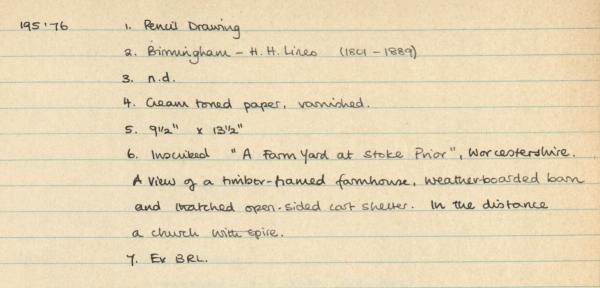 195'76 1. Pencil Drawing
2. Birmingham - H. H. Lines (1801 - 1889)
3. n.d.
4. Cream toned paper, varnished.
5. 9 1/2" x 13 1/2"
6. Inscribed "A Farm Yard at Stoke Prior", Worcestershire.
A view of a timber-framed farmhouse, weather-boarded barn
and thatched open-sided cart shelter. In the distance
a church with spire.
7. Ex BRL.